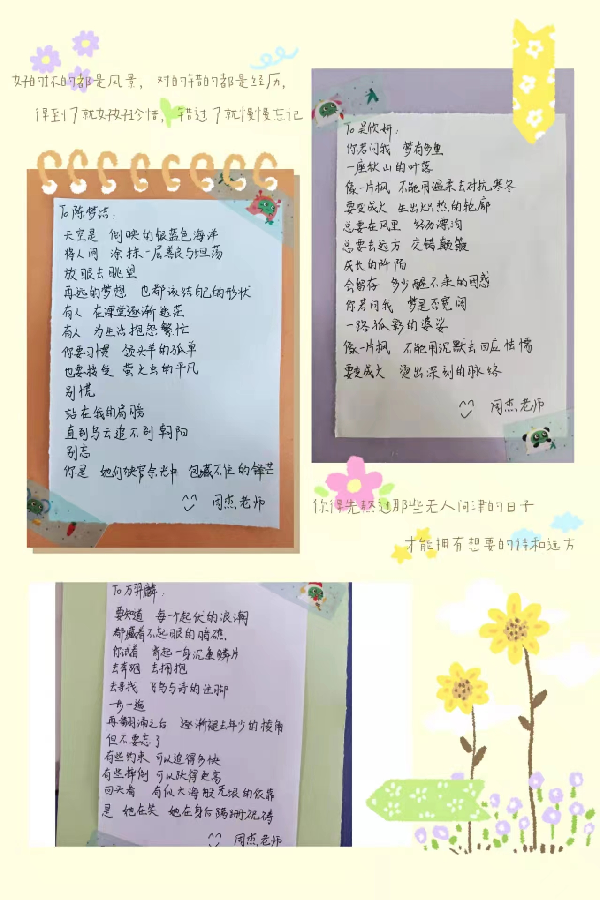 好的坏的都是风景，对的错的都是经历，
得到了就好好珍惜，错过了就慢慢忘记
To 陈梦洁：
天空是 倒映的银蓝色海洋
将人间 涂抹一层善良与坦荡
放眼去眺望
再远的梦想 也都该给自己的形状
有人 在课堂逐渐迷茫
有人 为生活抱怨繁忙
你要习惯 领头羊的孤单
也要接受 萤火虫的平凡
别慌
站在我的肩膀
直到乌云追不到朝阳
别忘
你是 她们快门点光中 包藏不住的锋芒
周杰老师
To 吴欣妍：
你若问我 梦有多重
一座秋山的叶落
像一片枫 不能用逝来去对抗寒冬
要变成火 生出炽热的轮廓
总要在风里 经历漂泊
总要去远方 交错颠簸
成长的阡陌
会留存 多少醒不来的困惑
你若问我 梦是否宽阔
一络孤影的婆娑
像一片枫 不能用沉默去回应怯懦
要变成火 烫出深刻的脉络
周杰老师
你得先熬过那些无人问津的日子
才能拥有想要的诗和远方
To 万羿麟：
要知道 每一个起伏的浪潮
都藏着不起眼的暗礁
你试着 背起一身沉重鳞片
去奔跑 去拥抱
去寻找 飞鸟与诗的注脚
一步一遥
再翻涌之后 逐渐褪去年少的棱角
但不要忘了
有些约束 可以追得多快
有些摔倒 可以跳得更高
回头看 有似大海般无垠的依靠
是 她在笑 她在身后蹒跚祝祷
周杰老师